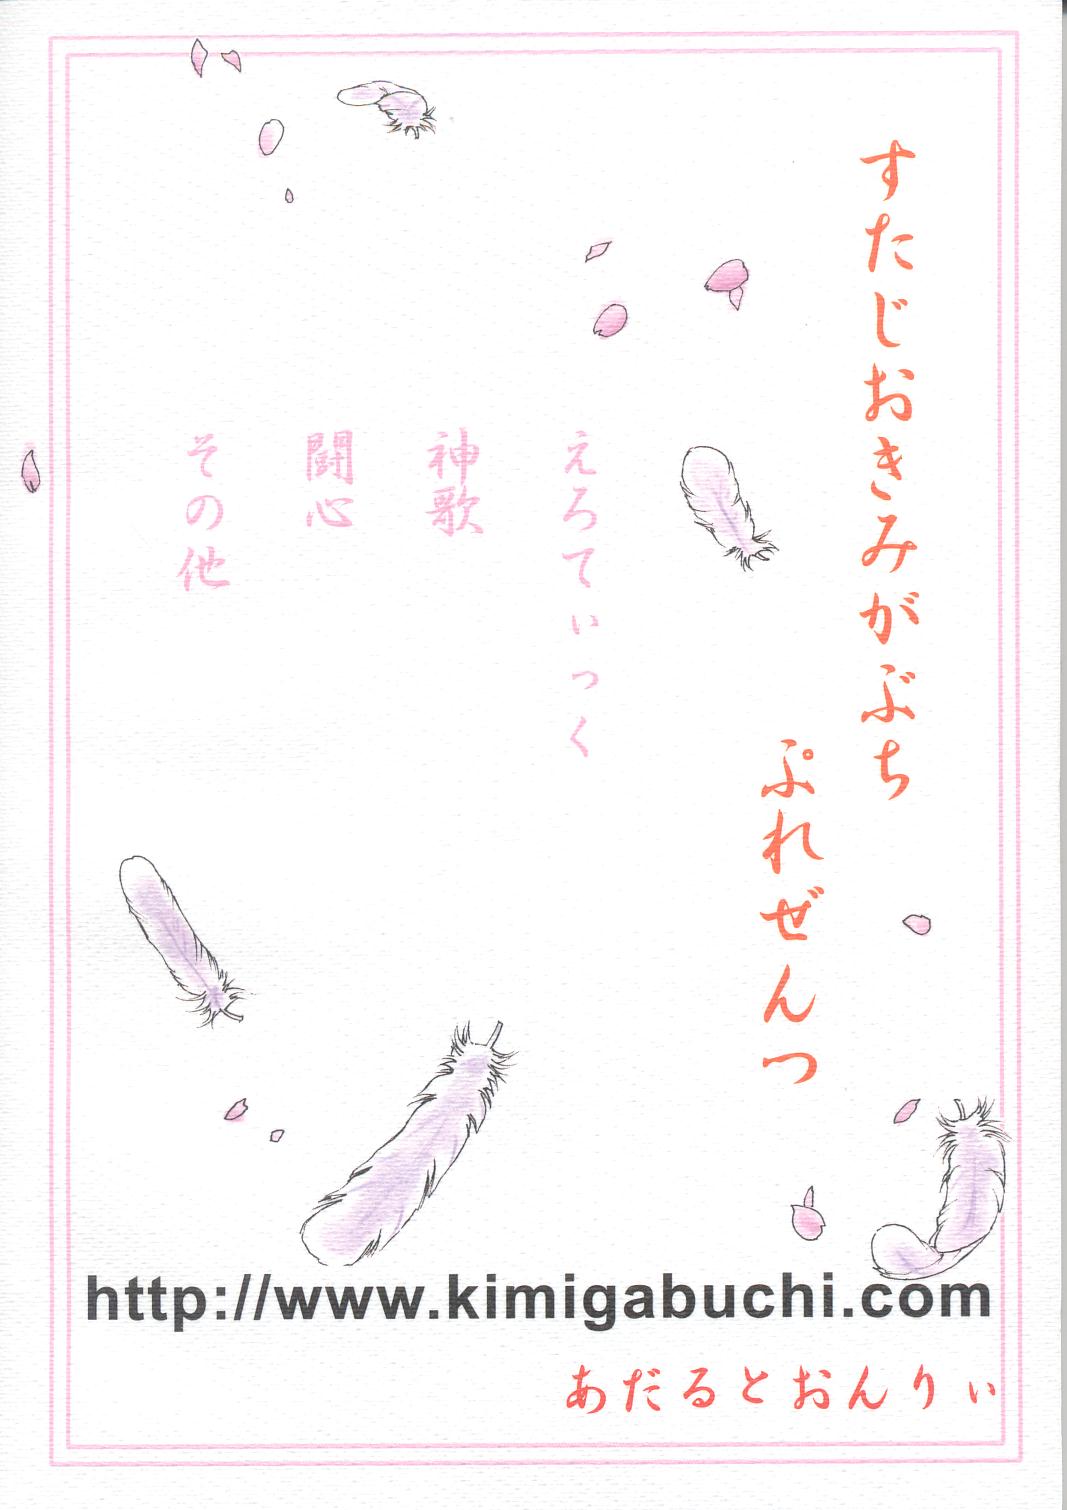 すたじおきみがぶち
ぷれぜんつ
えろてぃっく
神歌
闘心
その他
http://www.kimigabuchi.com
あだるとおんりぃ